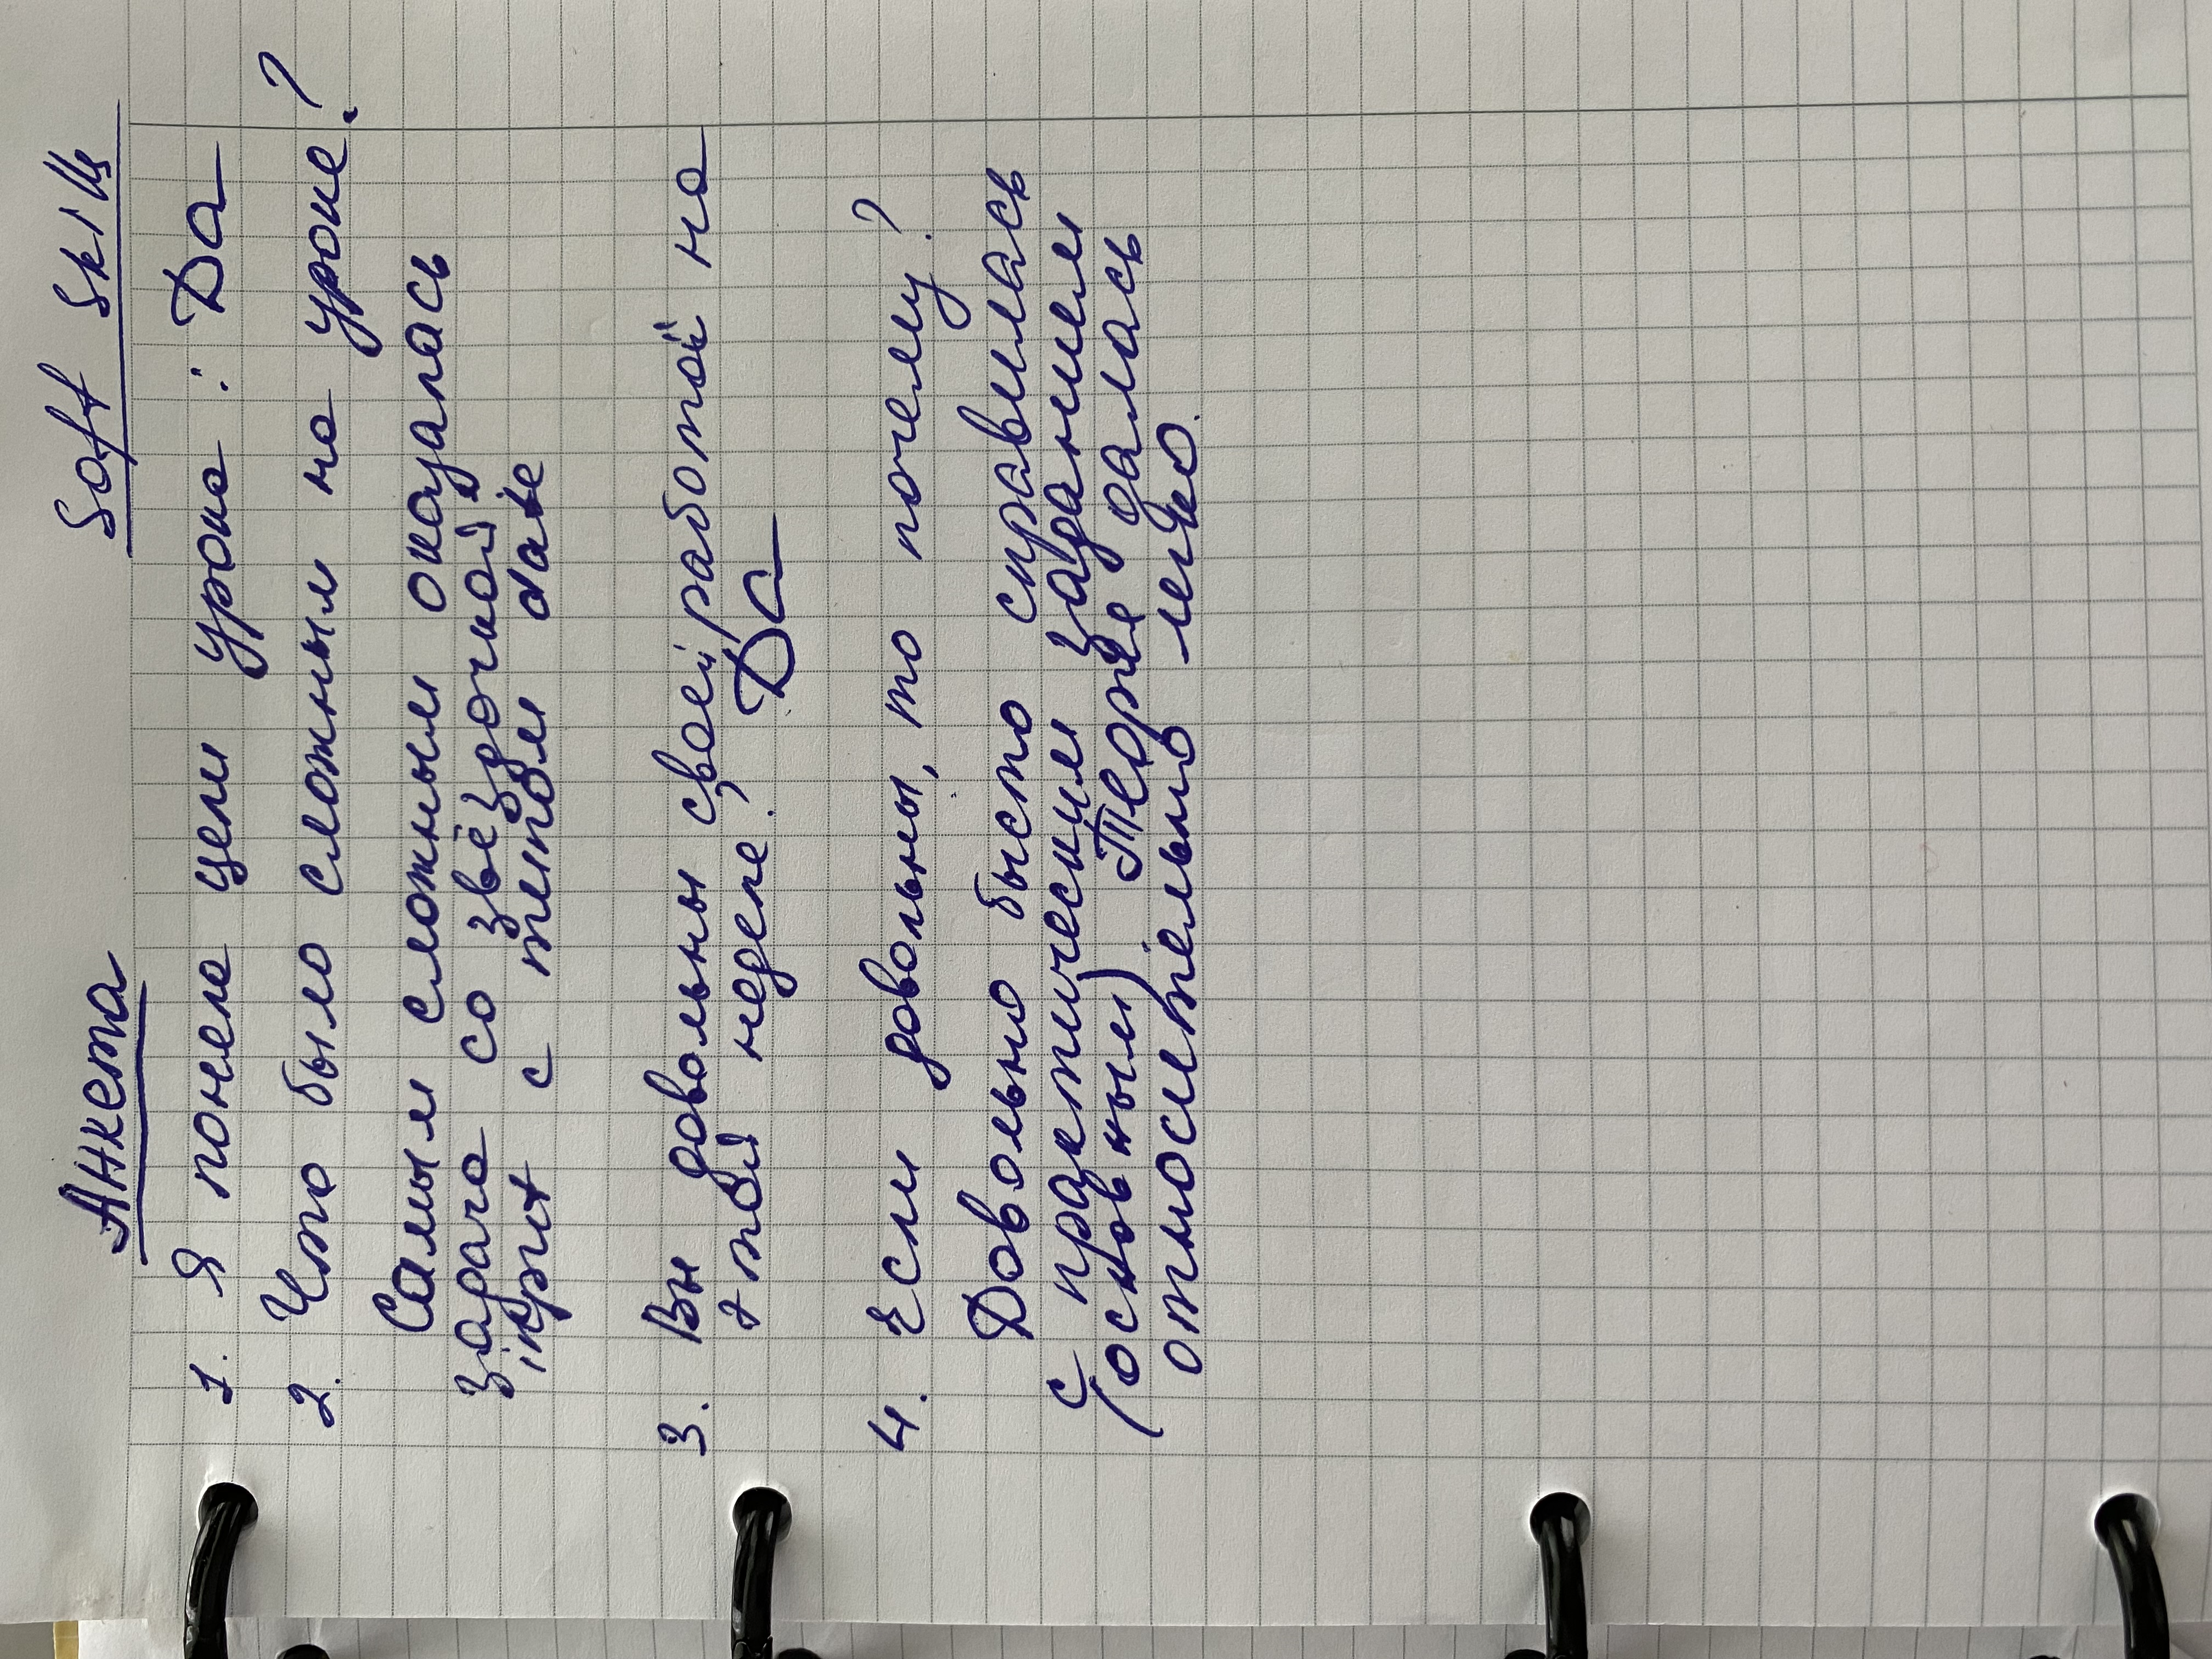 Анкета Soft Skills
1. Я поняла цели урока : Да
2. Что было сложным на уроке?
Самым сложным оказалась
задача со звёздочкой:
input с типом date
3. Вы довольны своей работой на
этой неделе? Да
4. Если довольны, то почему?
Довольно бысто справилась
с практическим заданием
(основным). Теория далась
относительно легко.